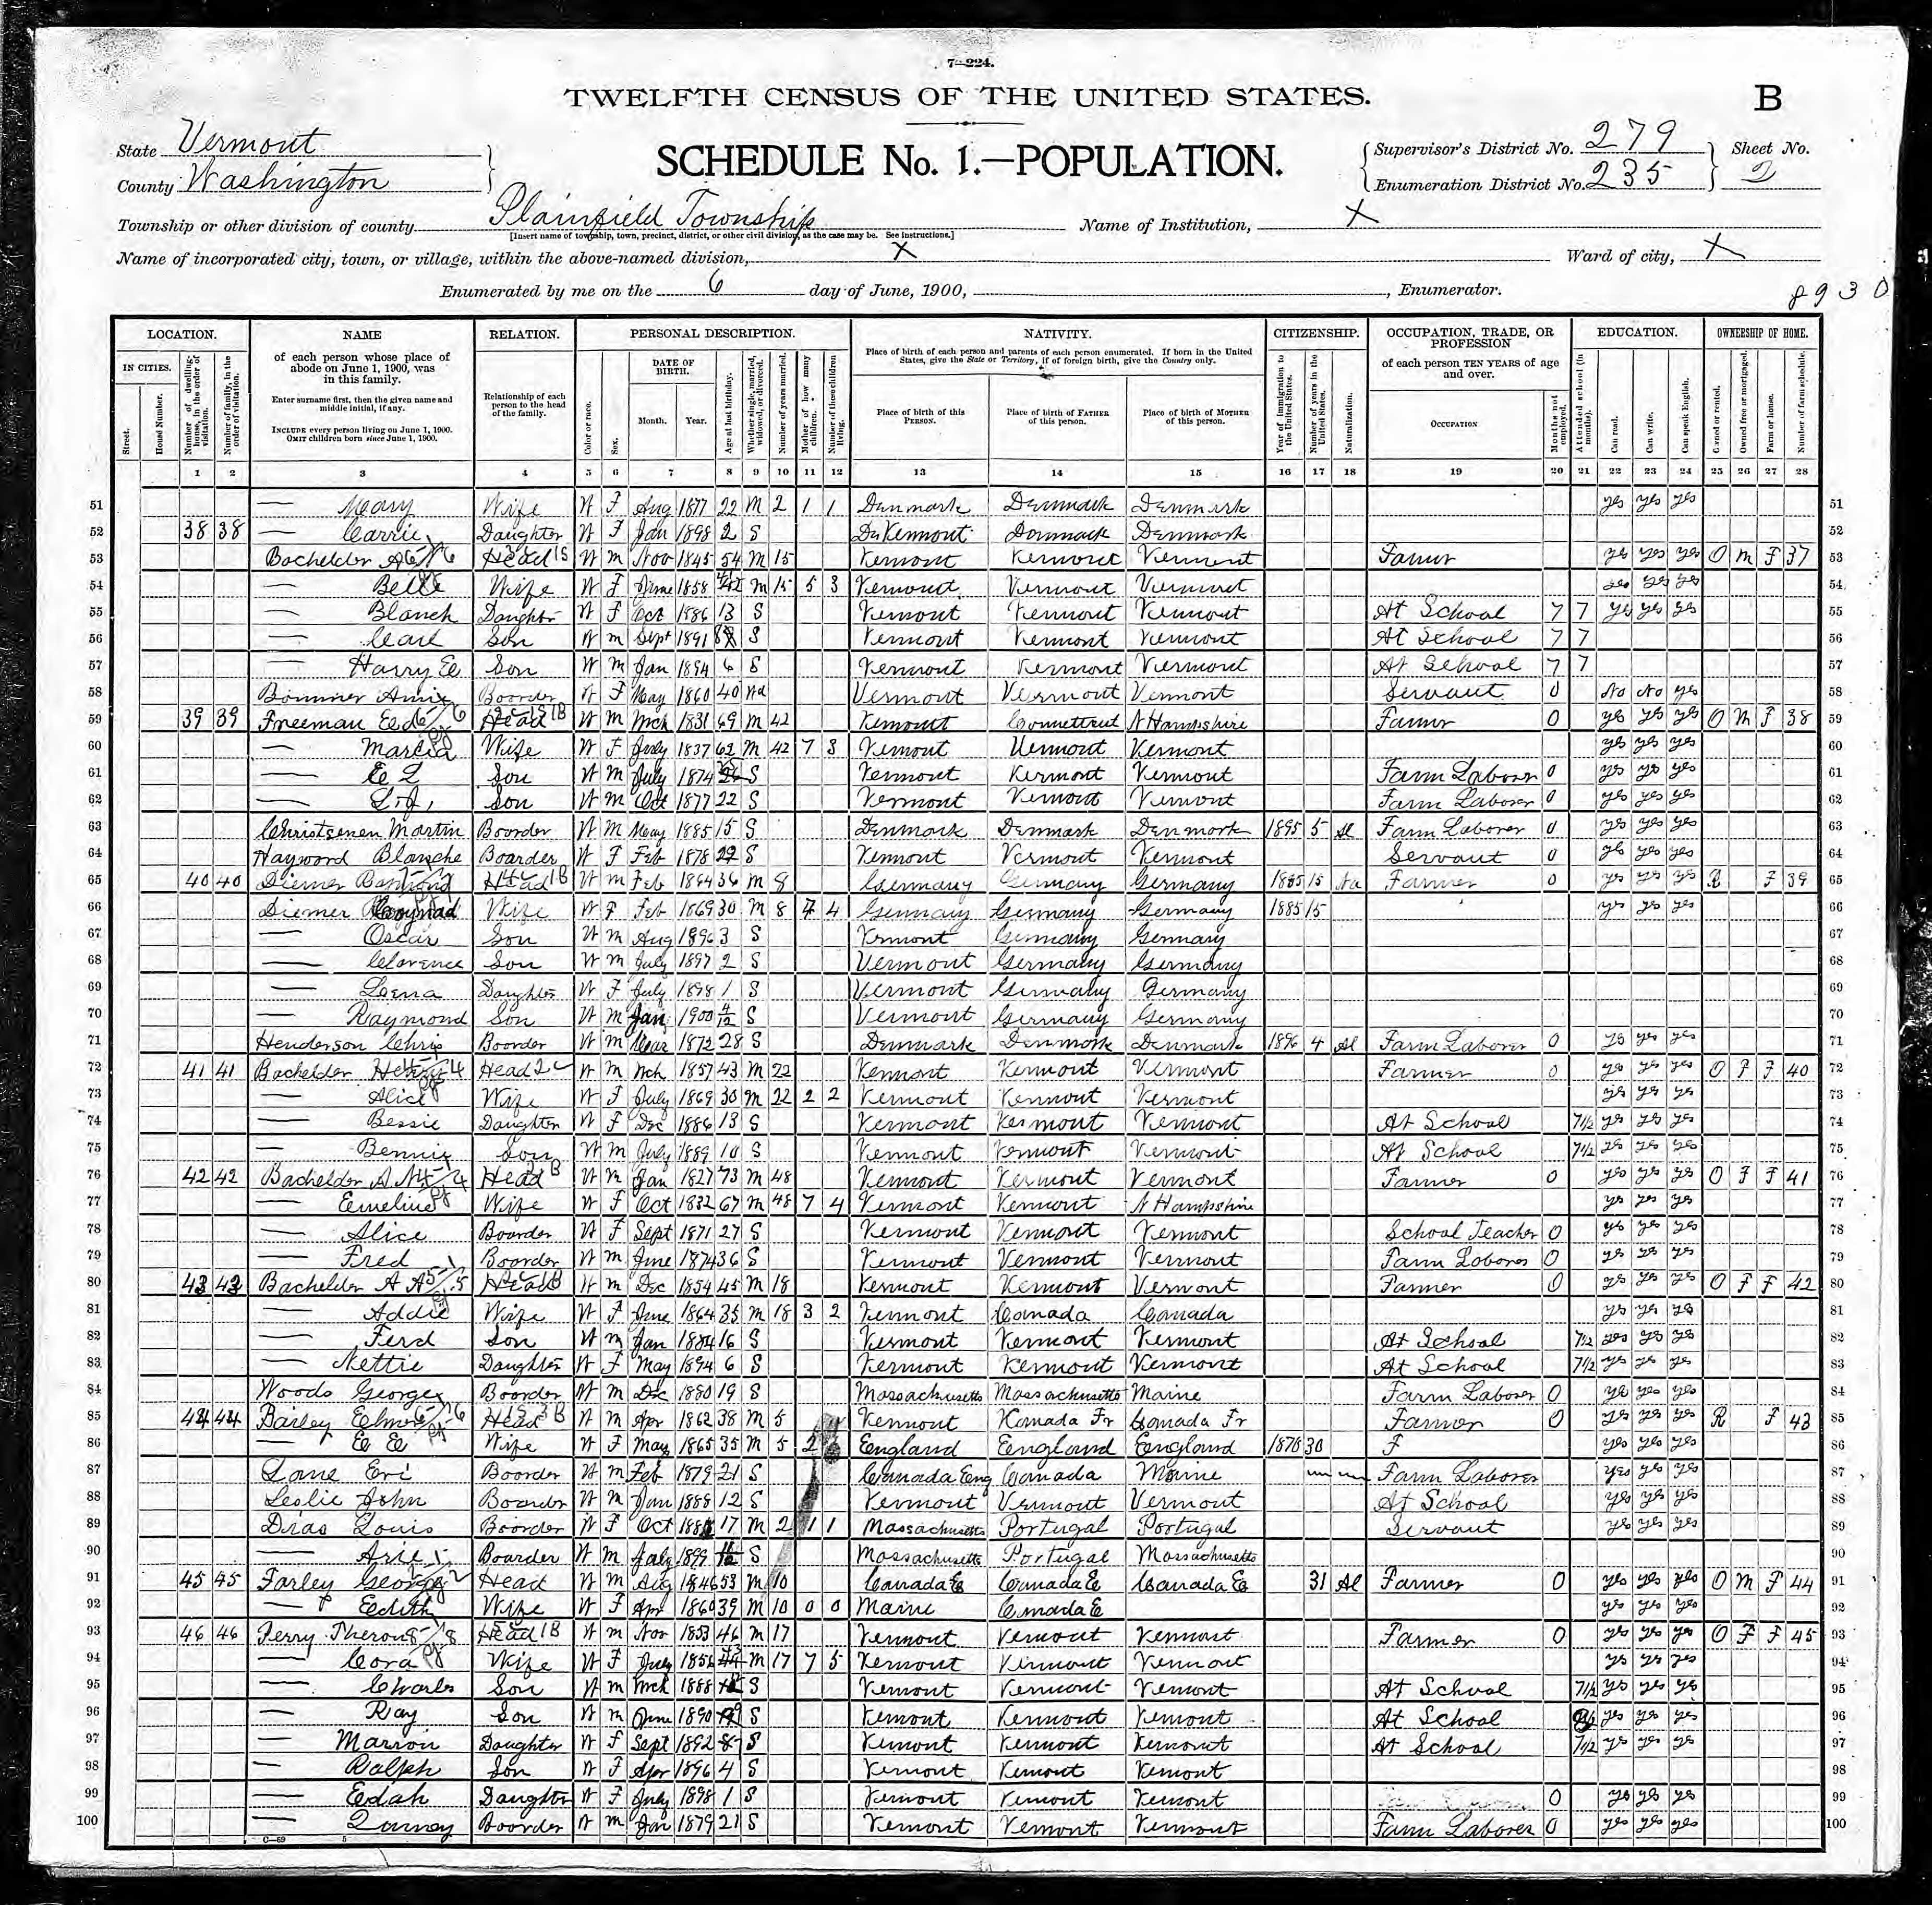 7—224.
TWELFTH CENSUS OF THE UNITED STATES.
B
State Vermont
County Washington
SCHEDULE No. 1.—POPULATION.
Supervisor's District No. 279
Enumeration District No. 235
Sheet No.
2
Township or other division of county Plainfield Township
Name of Institution, X
[Insert name of township, town, precinct, district, or other civil division, as the case may be. See instructions.]
Name of incorporated city, town, or village, within the above-named division, X
Ward of city, X
Enumerated by me on the 6 day of June, 1900, , Enumerator.
8930
LOCATION. NAME RELATION. PERSONAL DESCRIPTION. NATIVITY. CITIZENSHIP. OCCUPATION, TRADE, OR PROFESSION EDUCATION. OWNERSHIP OF HOME.
IN CITIES.
Street.
House Number.
Number of dwelling-house, in the order of visitation.
Number of family, in the order of visitation.
of each person whose place of abode on June 1, 1900, was in this family.
Enter surname first, then the given name and middle initial, if any.
INCLUDE every person living on June 1, 1900.
OMIT children born since June 1, 1900.
Relationship of each person to the head of the family.
Color or race.
Sex.
DATE OF BIRTH.
Month. Year.
Age at last birthday.
Whether single, married, widowed, or divorced.
Number of years married.
Mother of how many children.
Number of these children living.
Place of birth of each person and parents of each person enumerated. If born in the United States, give the State or Territory, if of foreign birth, give the Country only.
Place of birth of this PERSON.
Place of birth of FATHER of this person.
Place of birth of MOTHER of this person.
Year of immigration to the United States.
Number of years in the United States.
Naturalization.
of each person TEN YEARS of age and over.
OCCUPATION
Months not employed.
Attended school (in months).
Can read.
Can write.
Can speak English.
Owned or rented.
Owned free or mortgaged.
Farm or house.
Number of farm schedule.
1 2 3 4 5 6 7 8 9 10 11 12 13 14 15 16 17 18 19 20 21 22 23 24 25 26 27 28
51 — Mary Wife W F Aug 1877 22 M 2 1 1 Denmark Denmark Denmark yes yes yes 51
52 38 38 — Carrie Daughter W F Jan 1898 2 S Vermont Denmark Denmark 52
53 Bachelder Head W M Nov 1845 54 M 15 Vermont Vermont Vermont Farmer yes yes yes O M F 37 53
54 — Belle Wife W F June 1858 M 15 5 3 Vermont Vermont Vermont yes yes yes 54
55 — Blanch Daughter W F Oct 1886 13 S Vermont Vermont Vermont At School 7 7 yes yes yes 55
56 — Carl Son W M Sept 1891 8 S Vermont Vermont Vermont At School 7 7 56
57 — Harry E Son W M Jan 1894 6 S Vermont Vermont Vermont At School 7 7 57
58 Annie Boarder W F May 1860 40 Wd Vermont Vermont Vermont Servant 0 No No yes 58
59 39 39 Freeman Head W M Mch 1831 69 M 42 Vermont Connetticut N Hampshire Farmer 0 yes yes yes O M F 38 59
60 — Marcia Wife W F July 1837 62 M 42 7 3 Vermont Vermont Vermont yes yes yes 60
61 — E L Son W M July 1874 S Vermont Vermont Vermont Farm Laborer 0 yes yes yes 61
62 — Son W M Oct 1877 22 S Vermont Vermont Vermont Farm Laborer 0 yes yes yes 62
63 Christsenen Martin Boarder W M May 1885 15 S Denmark Denmark Denmark 1895 5 Al Farm Laborer 0 yes yes yes 63
64 Hayword Blanche Boarder W F Feb 1878 22 S Vermont Vermont Vermont Servant 0 yes yes yes 64
65 40 40 Diemer Head W M Feb 1864 36 M 8 Germany Germany Germany 1885 15 Na Farmer 0 yes yes yes R F 39 65
66 Diemer Wife W F Feb 1869 30 M 8 4 Germany Germany Germany 1885 15 yes yes yes 66
67 — Oscar Son W M Aug 1896 3 S Vermont Germany Germany 67
68 — Clarence Son W M July 1897 2 S Vermont Germany Germany 68
69 — Leena Daughter W F July 1898 1 S Vermont Germany Germany 69
70 — Raymond Son W M Jan 1900 4/12 S Vermont Germany Germany 70
71 Henderson Chris Boarder W M Mar 1872 28 S Denmark Denmark Denmark 1896 4 Al Farm Laborer 0 yes yes yes 71
72 41 41 Bachelder Head W M Mch 1857 43 M 22 Vermont Vermont Vermont Farmer 0 yes yes yes O F F 40 72
73 — Alice Wife W F July 1869 30 M 22 2 2 Vermont Vermont Vermont yes yes yes 73
74 — Bessie Daughter W F Dec 1886 13 S Vermont Vermont Vermont At School 7½ yes yes yes 74
75 — Bennie Son W M July 1889 10 S Vermont Vermont Vermont At School 7½ yes yes yes 75
76 42 42 Bachelder A Head W M Jan 1827 73 M 48 Vermont Vermont Vermont Farmer 0 yes yes yes O F F 41 76
77 — Emeline Wife W F Oct 1832 67 M 48 7 4 Vermont Vermont N Hampshire yes yes yes 77
78 — Alice Boarder W F Sept 1871 27 S Vermont Vermont Vermont School Teacher 0 yes yes yes 78
79 — Fred Boarder W M June 1874 36 S Vermont Vermont Vermont Farm Laborer 0 yes yes yes 79
80 43 43 Bachelder A A Head W M Dec 1854 45 M 18 Vermont Vermont Vermont Farmer 0 yes yes yes O F F 42 80
81 — Addie Wife W F June 1864 35 M 18 3 2 Vermont Canada Canada yes yes yes 81
82 — Ferd Son W M Jan 1884 16 S Vermont Vermont Vermont At School 7½ yes yes yes 82
83 — Nettie Daughter W F May 1894 6 S Vermont Vermont Vermont At School 7½ yes yes yes 83
84 Woods George Boarder W M Dec 1880 19 S Massachusetts Massachusetts Maine Farm Laborer 0 yes yes yes 84
85 44 44 Bailey Elmer Head W M Apr 1862 38 M 5 Vermont Kanada Fr Canada Fr Farmer 0 yes yes yes R F 43 85
86 — E E Wife W F May 1865 35 M 5 2 England England England 1870 30 F yes yes yes 86
87 Lane Eri Boarder W M Feb 1879 21 S Canada Eng Canada Maine Farm Laborer yes yes yes 87
88 Leslie John Boarder W M Jan 1888 12 S Vermont Vermont Vermont At School yes yes yes 88
89 Dias Louis Boarder W F Oct 17 M 2 1 1 Massachusetts Portugal Portugal Servant yes yes yes 89
90 — Boarder W M July 1899 S Massachusetts Portugal Massachusetts 90
91 45 45 Farley George Head W M Aug 1846 53 M 10 Canada E Canada E Canada E 31 Al Farmer 0 yes yes yes O M F 44 91
92 — Edith Wife W F Apr 1860 39 M 10 0 0 Maine Canada E yes yes yes 92
93 46 46 Perry Theron Head W M Nov 1853 46 M 17 Vermont Vermont Vermont Farmer 0 yes yes yes O F F 45 93
94 — Cora Wife W F July 1856 M 17 7 5 Vermont Vermont Vermont yes yes yes 94
95 — Charles Son W M Mch 1888 S Vermont Vermont Vermont At School 7½ yes yes yes 95
96 — Ray Son W M June 1890 9 S Vermont Vermont Vermont At School yes yes yes 96
97 — Marion Daughter W F Sept 1892 S Vermont Vermont Vermont At School 7½ yes yes yes 97
98 — Ralph Son W F Apr 1896 4 S Vermont Vermont Vermont 98
99 — Edah Daughter W F July 1898 1 S Vermont Vermont Vermont 0 yes yes yes 99
100 — Boarder W M Jan 1879 21 S Vermont Vermont Vermont Farm Laborer 0 yes yes yes 100
C—69 5